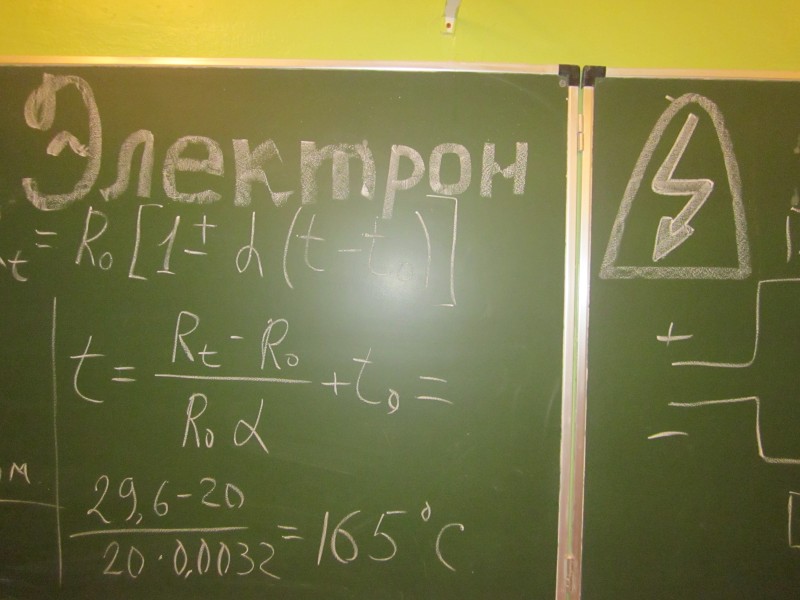 Электрон
t = R₀ [1 ± α (t − t₀)]
t = (Rt − R₀) / (R₀ α) + t₀ =
ом
(29,6 − 20) / (20 · 0,0032) = 165 °C
+
−